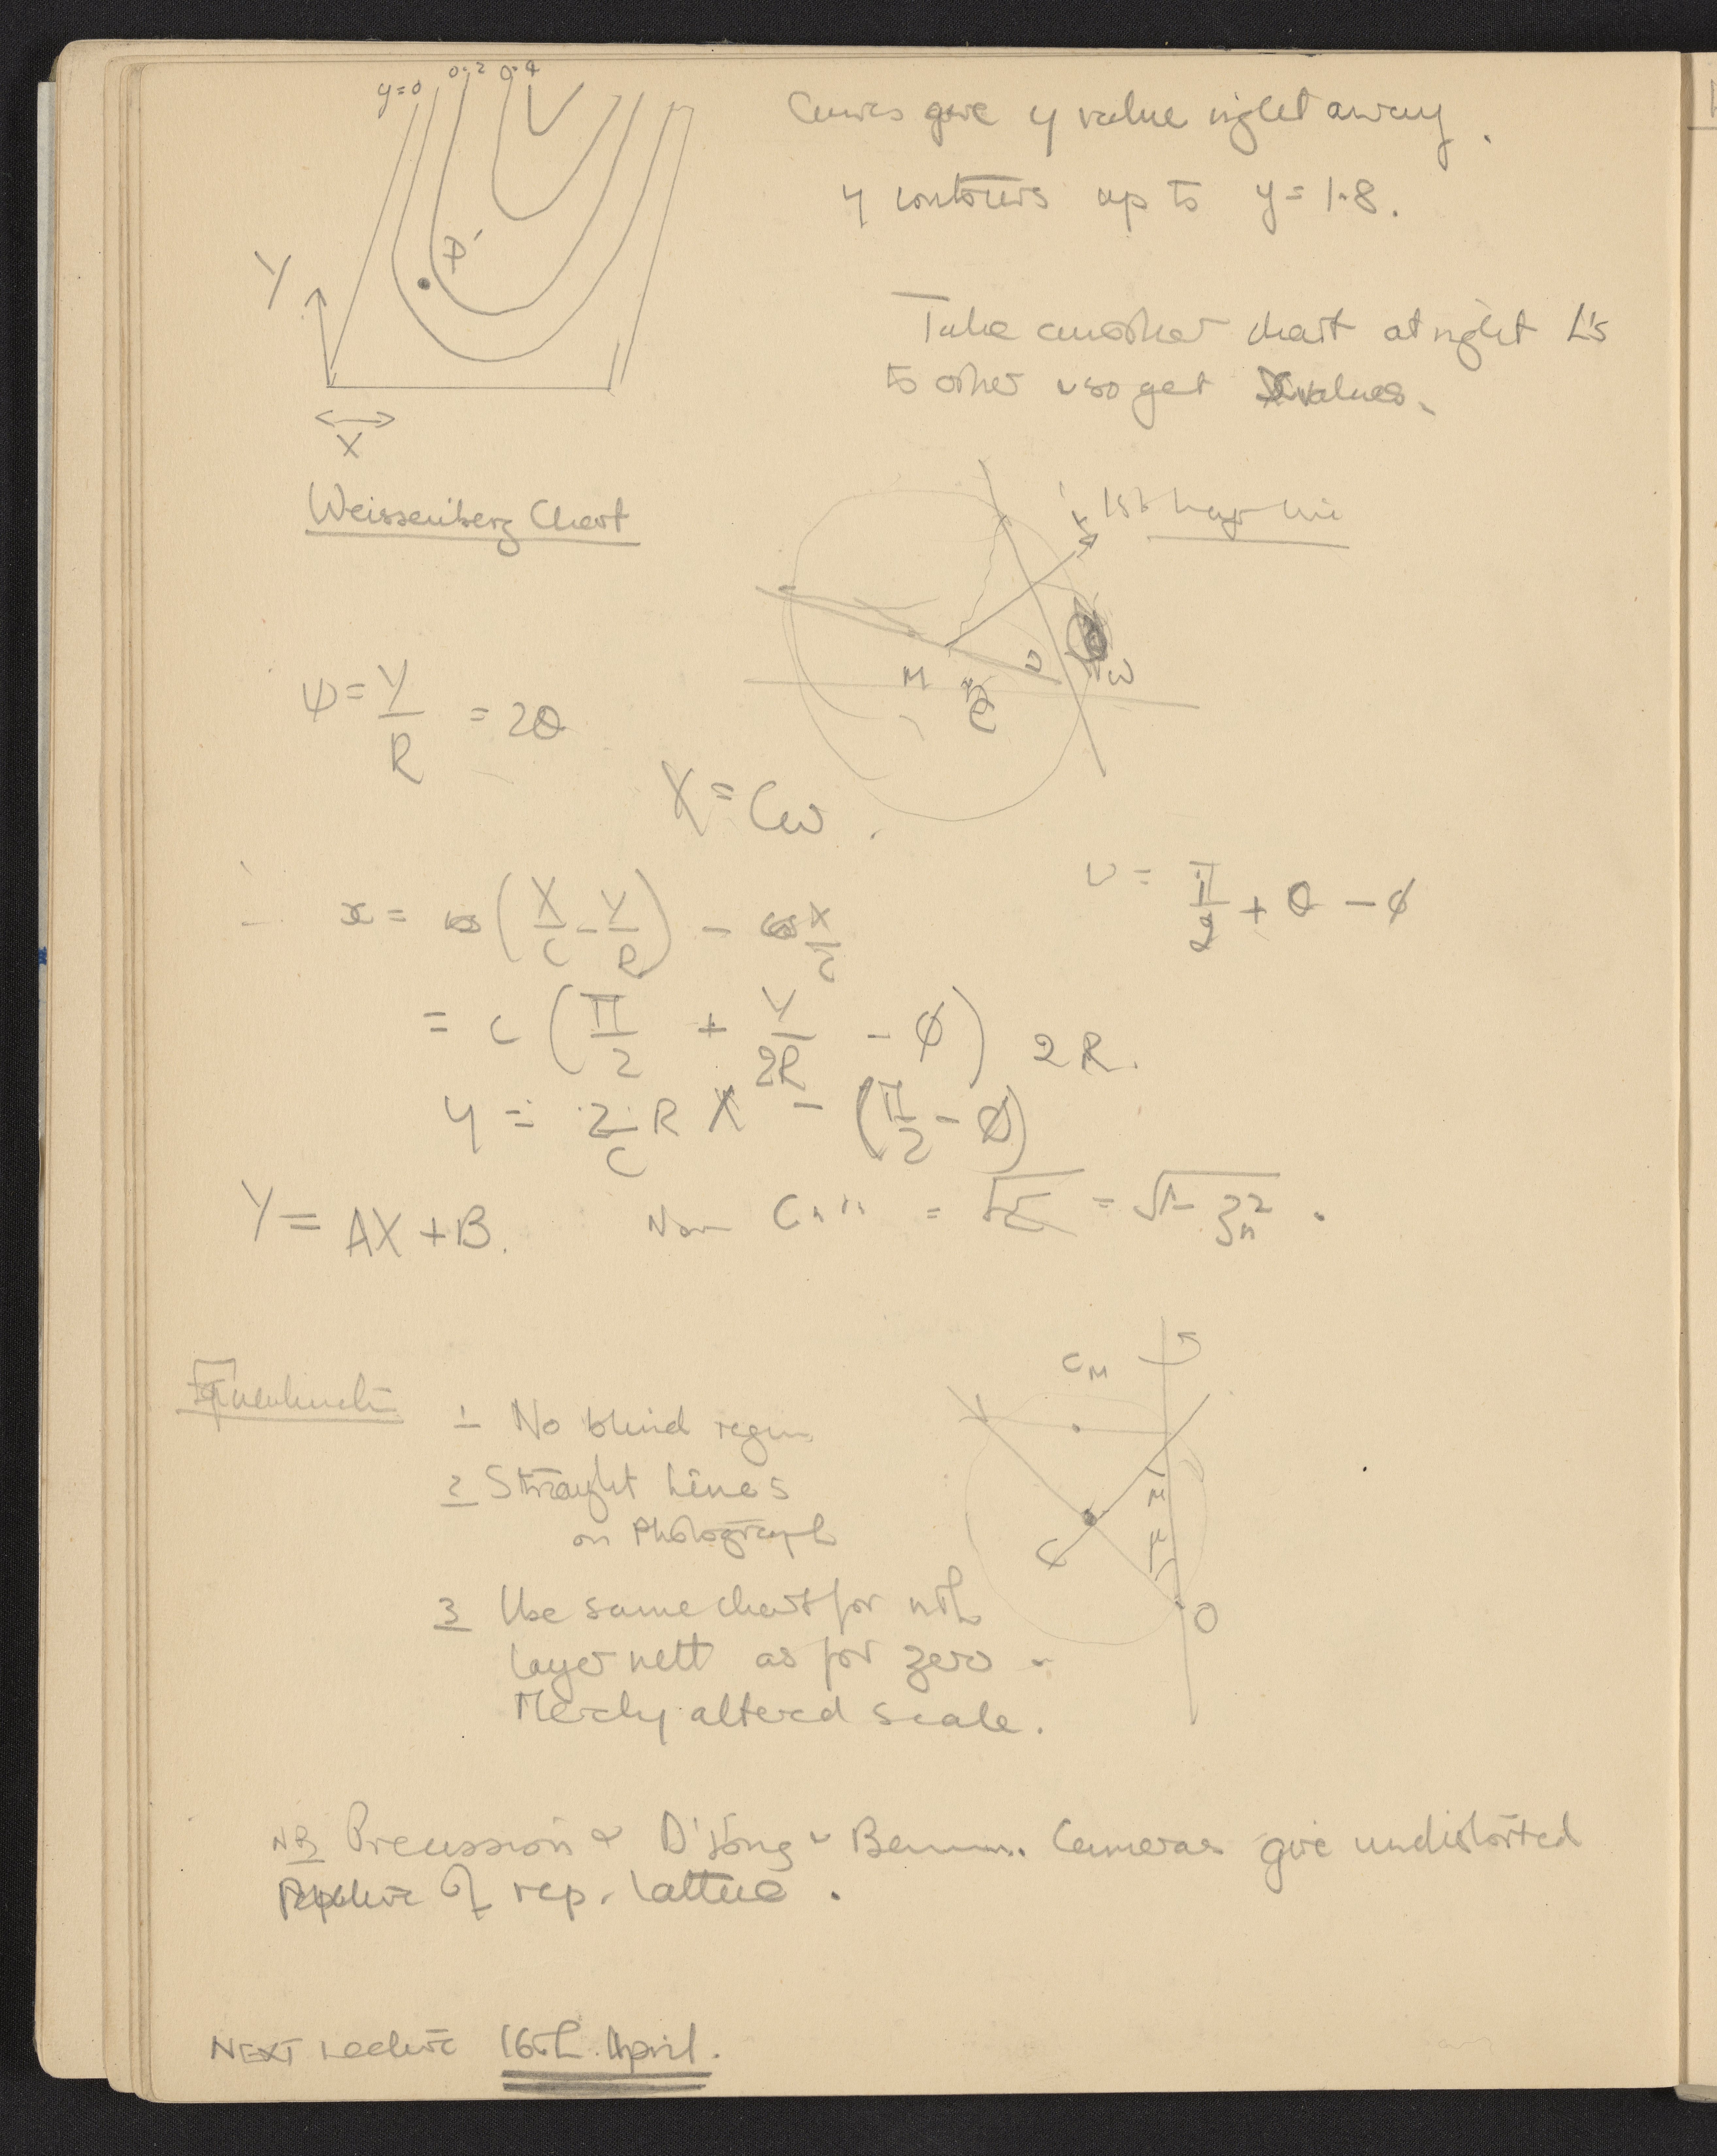 y=0 0.2 0.4
Curves give y value right away.
y contours up to y = 1.8.
P′
Y
X
Take another chart at right L's
to other & so get X values.
Weissenberg Chart
1st
M
ω
ψ = Y/R = 2θ
X = Cω.
υ = π/2 + θ − φ
x = cos (X/C − Y/R) − cos X/C
= C (π/2 + Y/2R − φ) 2R.
y = 2/C R X − (π/2 − φ)
Y = AX + B.
= √(1 − ζn²).
1 No blind region
2 Straight Lines
on Photograph
3 Use same chart for nth
layer nett as for zero -
Merely altered scale.
CM
μ
μ
C
O
NB Precession & D'Jong & Cameras give undistorted
of rep. lattice.
NEXT Lecture 16th. April.